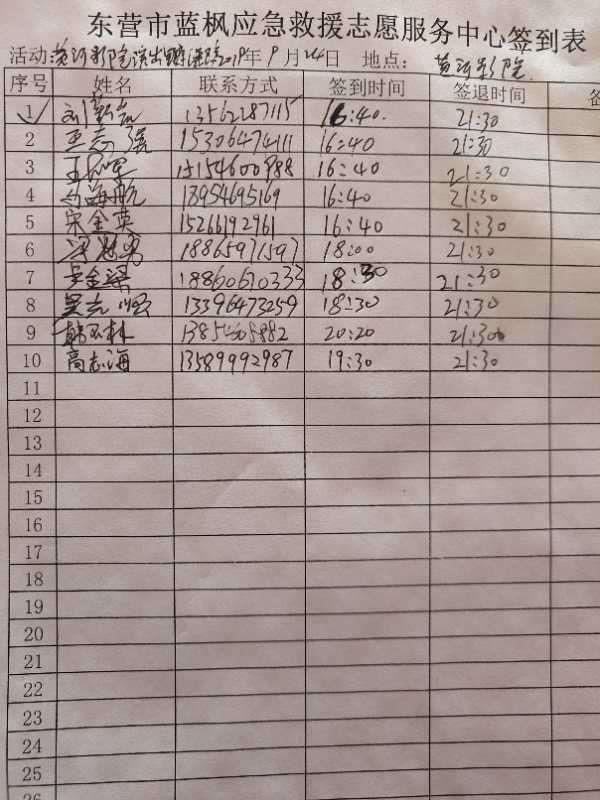 东营市蓝枫应急救援志愿服务中心签到表
活动：黄河影院演出 2019年9月24日 地点：黄河影院
序号 姓名 联系方式 签到时间 签退时间 备
1 13562287115 16:40 21:30
2 王志强 15306474111 16:40 21:30
3 15154600988 16:40 21:30
4 马海航 18954695169 16:40 21:30
5 宋金英 15266192961 16:40 21:30
6 18865971597 18:00 21:30
7 18860610333 18:30 21:30
8 吴志 13396473259 18:30 21:30
9 20:20 21:30
10 高志海 13589992987 19:30 21:30
11
12
13
14
15
16
17
18
19
20
21
22
23
24
25
26